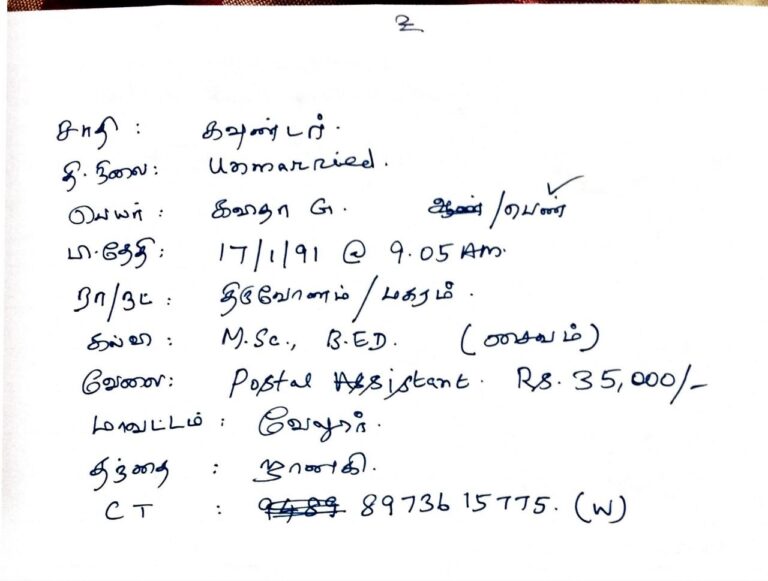 உ
சாதி : கவுண்டர்.
தி.நிலை : Unmarried.
பெயர் : கவிதா G. ஆண்/பெண் ✓
பி.தேதி : 17/1/91 @ 9.05 Am.
ரா/நட் : திருவோணம் / மகரம்.
கல்வி : M.Sc., B.ED. (சைவம்)
வேலை : Postal Assistant. Rs. 35,000/-
மாவட்டம் : வேலூர்.
தந்தை : ஜானகி.
CT : 9489 8973615775. (W)